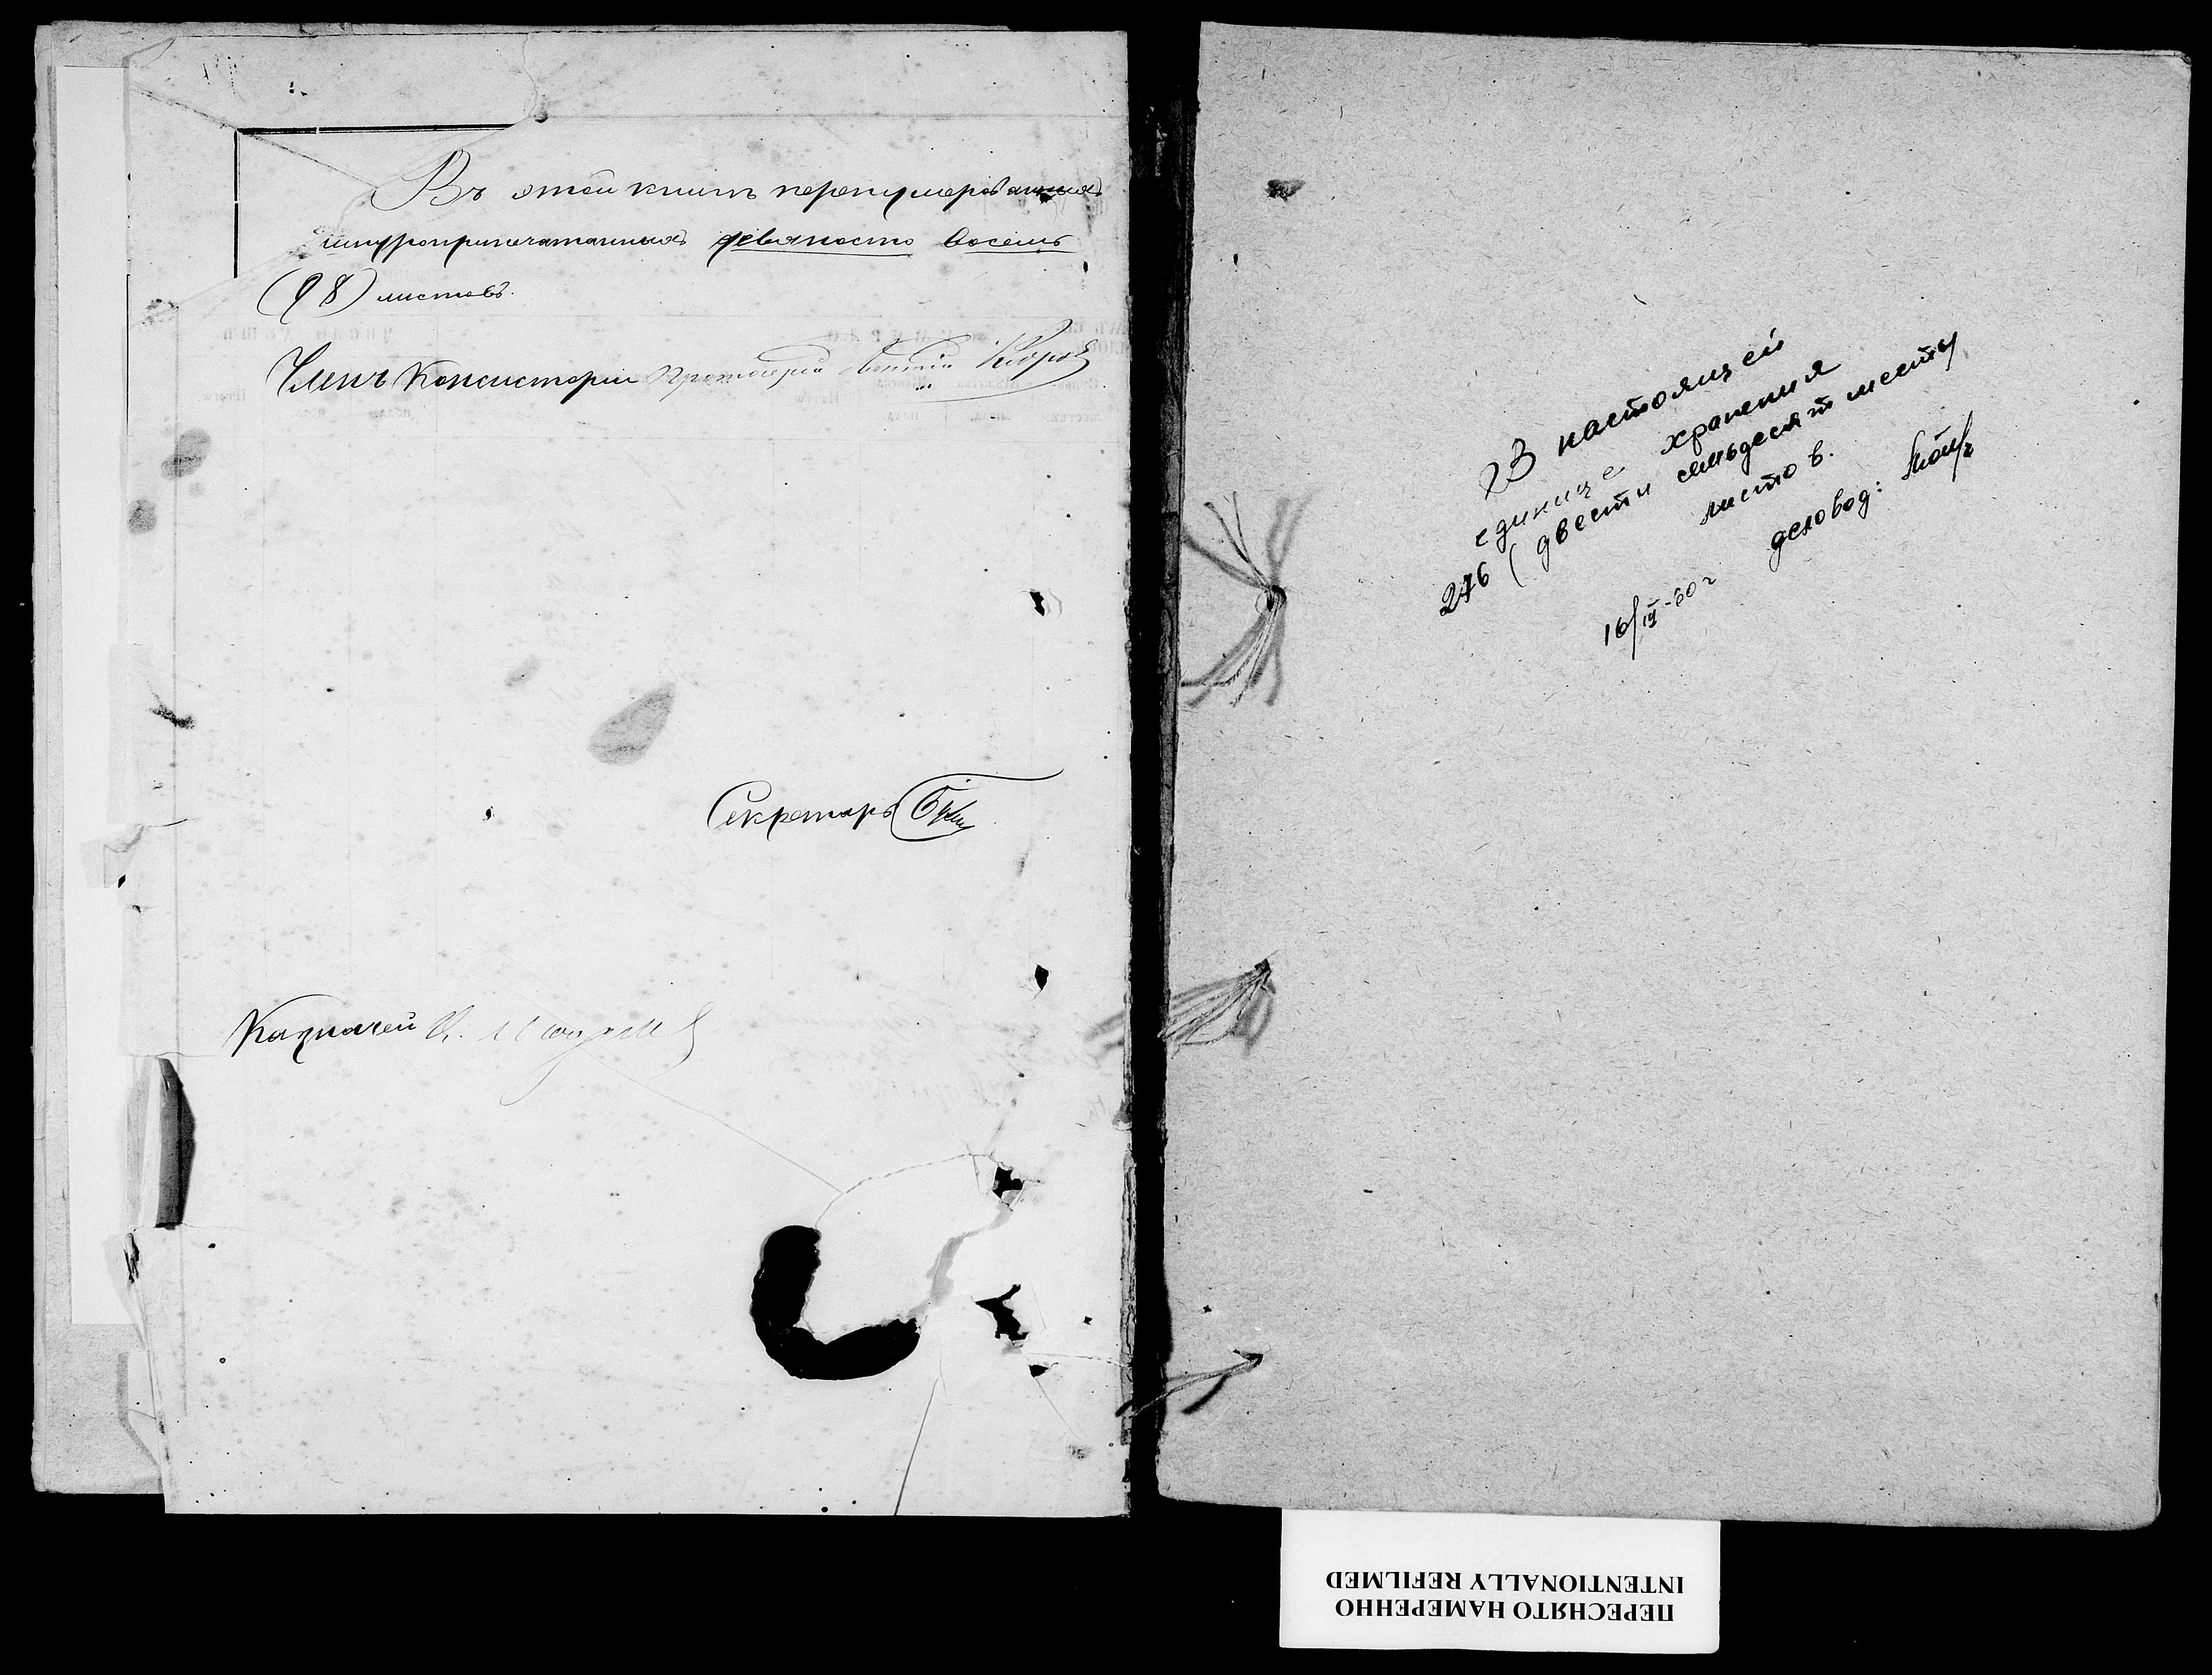 Въ этой книгѣ перенумерованныхъ
шнуроприпечатанныхъ девяносто восемь
(98) листовъ.
Членъ Консисторіи Протоіерей
Секретарь
Казначей
В настоящей
единице хранения
276 (двести семьдесят шесть
листов.
деловод:
16/IV-60 г
ПЕРЕСНЯТО НАМЕРЕННО
INTENTIONALLY REFILMED